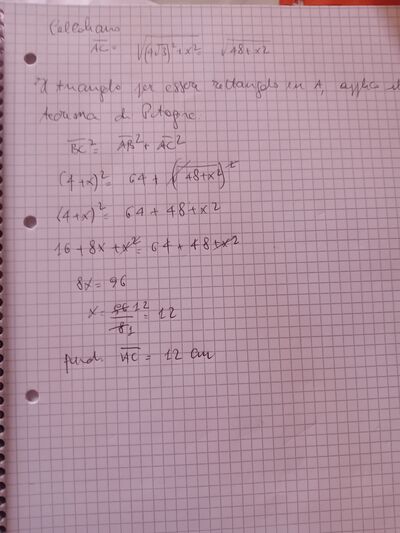 Calcoliamo
AC = √(4√3)²+x² = √48+x2
Il triangolo per essere rettangolo in A, applico il
teorema di Pitagora
BC² = AB² + AC²
(4+x)² = 64 + (√48+x²)²
(4+x)² = 64 + 48 + x2
16 + 8x + x² = 64 + 48 + x2
8x = 96
x = 96 12 / 8 1 = 12
quindi AC = 12 cm